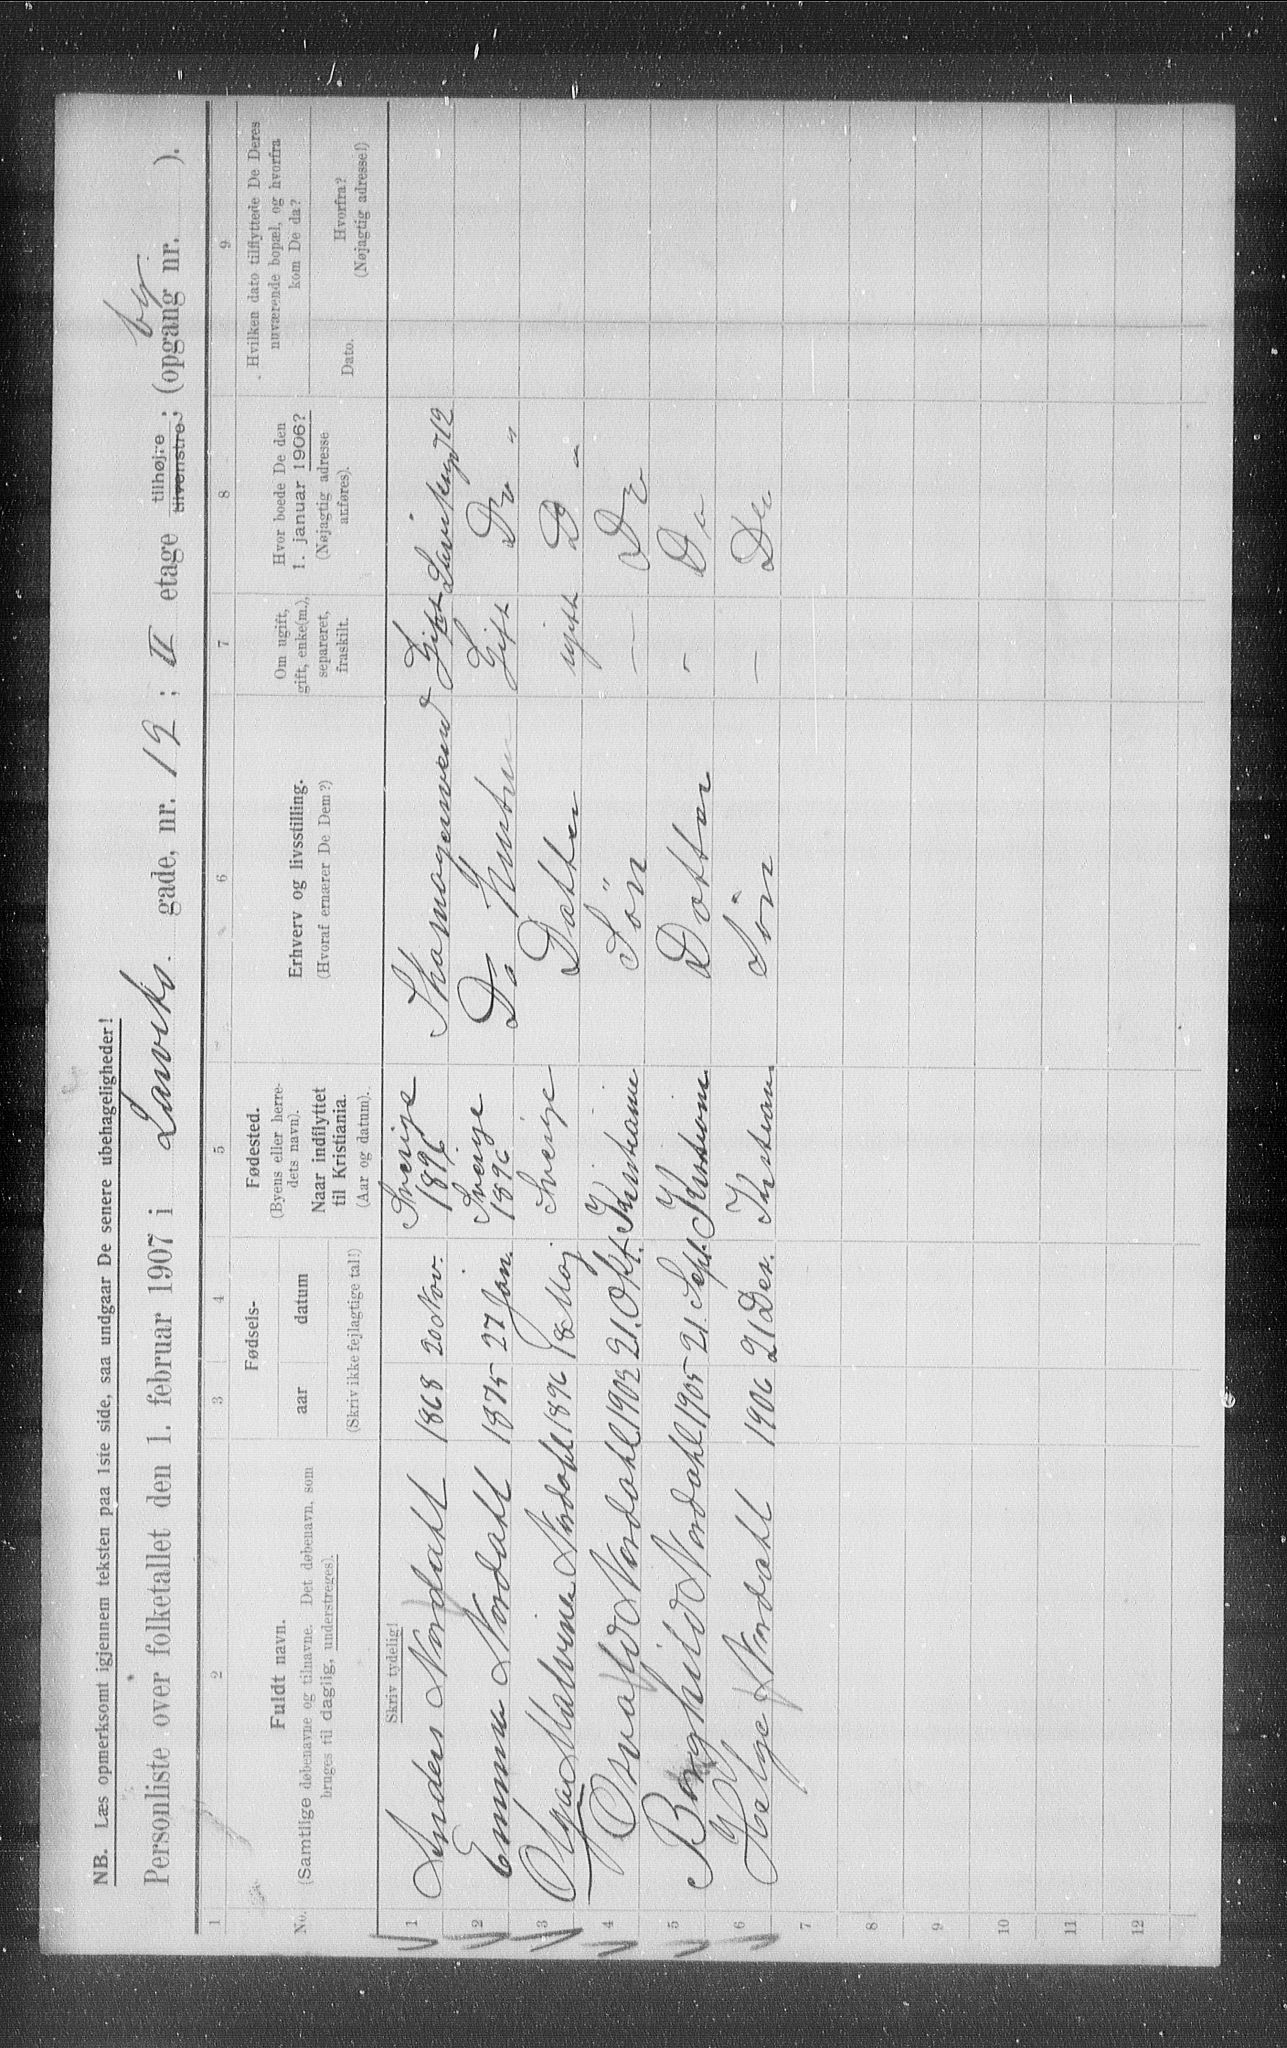 NB. Læs opmerksomt igjennem teksten paa 1ste side, saa undgaar De senere ubehageligheder!
Personliste over folketallet den 1. februar 1907 i Laviks. gade, nr. 12; II etage tilhøjre; tilvenstre; (opgang nr. by ).
1 2 3 4 5 6 7 8 9
No. Fuldt navn. (Samtlige døbenavne og tilnavne. Det døbenavn, som bruges til daglig, understreges).
Fødsels- aar datum (Skriv ikke fejlagtige tal!)
Fødested. (Byens eller herredets navn). Naar indflyttet til Kristiania. (Aar og datum).
Erhverv og livsstilling. (Hvoraf ernærer De Dem?)
Om ugift, gift, enke(m.), separeret, fraskilt.
Hvor boede De den 1. januar 1906? (Nøjagtig adresse anføres).
Hvilken dato tilflyttede De Deres nuværende bopæl, og hvorfra kom De da?
Dato. Hvorfra? (Nøjagtig adresse!)
Skriv tydelig!
1 Anders Nordahl 1868 20 Nov. Sverige 1896 Skomagersvend Gift
2 Emma Nordahl 1875 27 Jan. Sverige 1896 Do Hustru Gift Do "
3 Olga Malvina Nordahl 1896 18 Maj Sverige Datter ugift Do "
4 Osvald Nordahl 1903 21. Okt. Kristiania Sön — Do
5 Borghild Nordahl 1905 21. Sept. Kristiania Dotter - Do
6 Helge Nordahl 1906 21 Des. Kristian Sön — Do
7
8
9
10
11
12